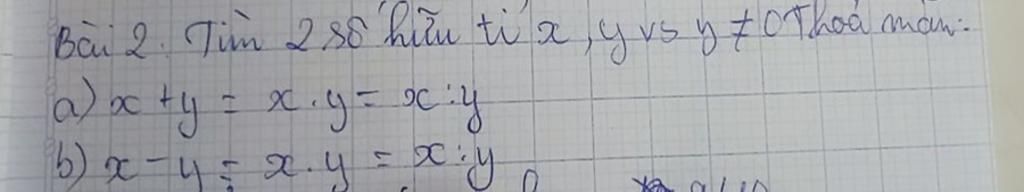 Bài 2. Tìm 2 số hữu tỉ x, y vs y ≠ 0 Thoả mãn:
a) x + y = x . y = x : y
b) x - y = x . y = x : y